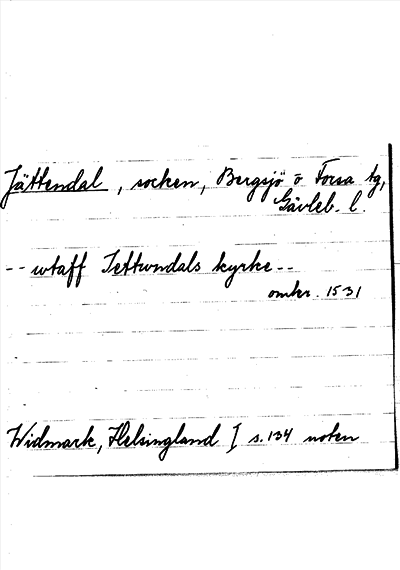 Jättendal, socken, Bergsjö o Forsa tg,
Gävleb. l.
-- wtaff Tettwndals kyrke --
omkr. 1531
Widmark, Helsingland I s. 134 noten